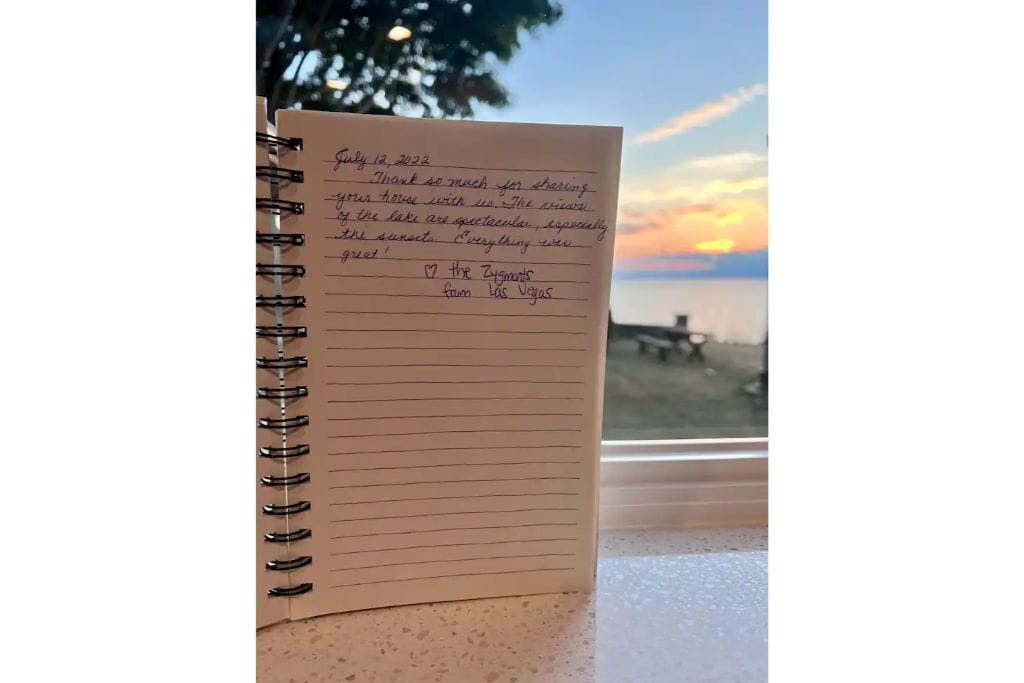 July 12, 2022
Thank so much for sharing
your house with us. The views
of the lake are spectacular, especially
the sunsets. Everything was
great!
♡ the Zygmonts
from Las Vegas